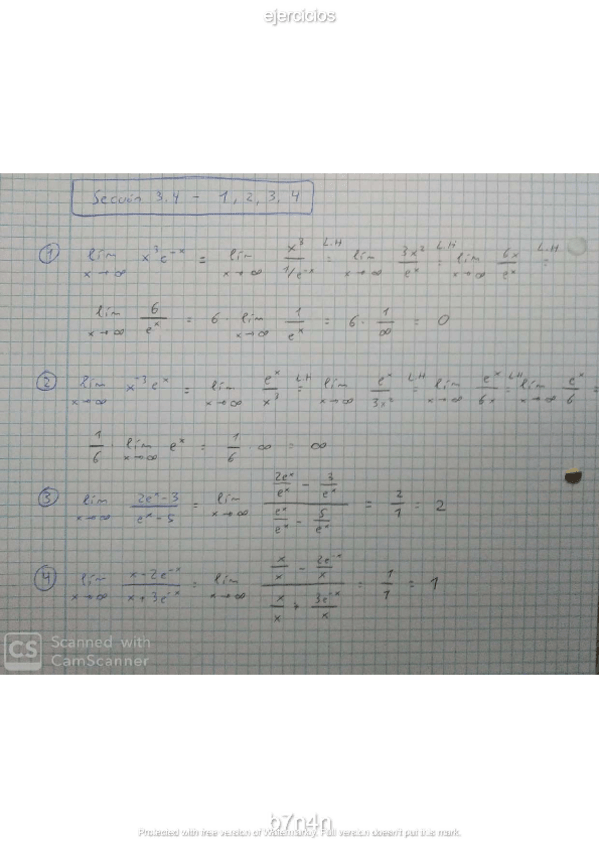 ejercicios
Sección 3.4 - 1, 2, 3, 4
① lim x→∞ x³e⁻ˣ = lim x→∞ x³/(1/e⁻ˣ) =L.H lim x→∞ 3x²/eˣ =L.H lim x→∞ 6x/eˣ =L.H
lim x→∞ 6/eˣ = 6 · lim x→∞ 1/eˣ = 6 · 1/∞ = 0
② lim x→∞ x⁻³eˣ = lim x→∞ eˣ/x³ =L.H lim x→∞ eˣ/3x² =L.H lim x→∞ eˣ/6x =L.H lim x→∞ eˣ/6 =
1/6 · lim x→∞ eˣ = 1/6 · ∞ = ∞
③ lim x→∞ (2eˣ-3)/(eˣ-5) = lim x→∞ (2eˣ/eˣ - 3/eˣ)/(eˣ/eˣ - 5/eˣ) = 2/1 = 2
④ lim x→∞ (x-2e⁻ˣ)/(x+3e⁻ˣ) = lim x→∞ (x/x - 2e⁻ˣ/x)/(x/x + 3e⁻ˣ/x) = 1/1 = 1
CS Scanned with
CamScanner
b7n4n
Protected with free version of Watermarkly. Full version doesn't put this mark.